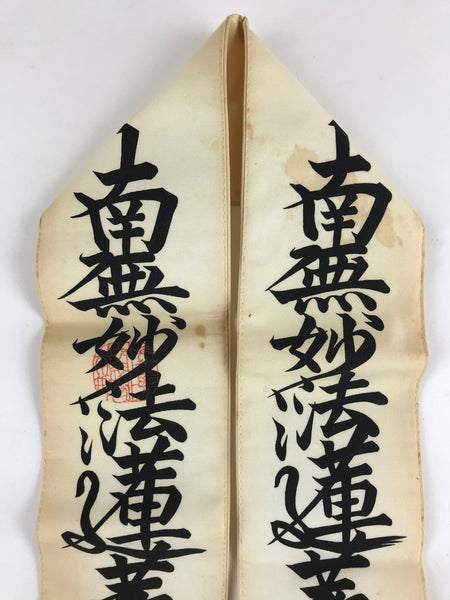 南無妙法蓮華
南無妙法蓮華